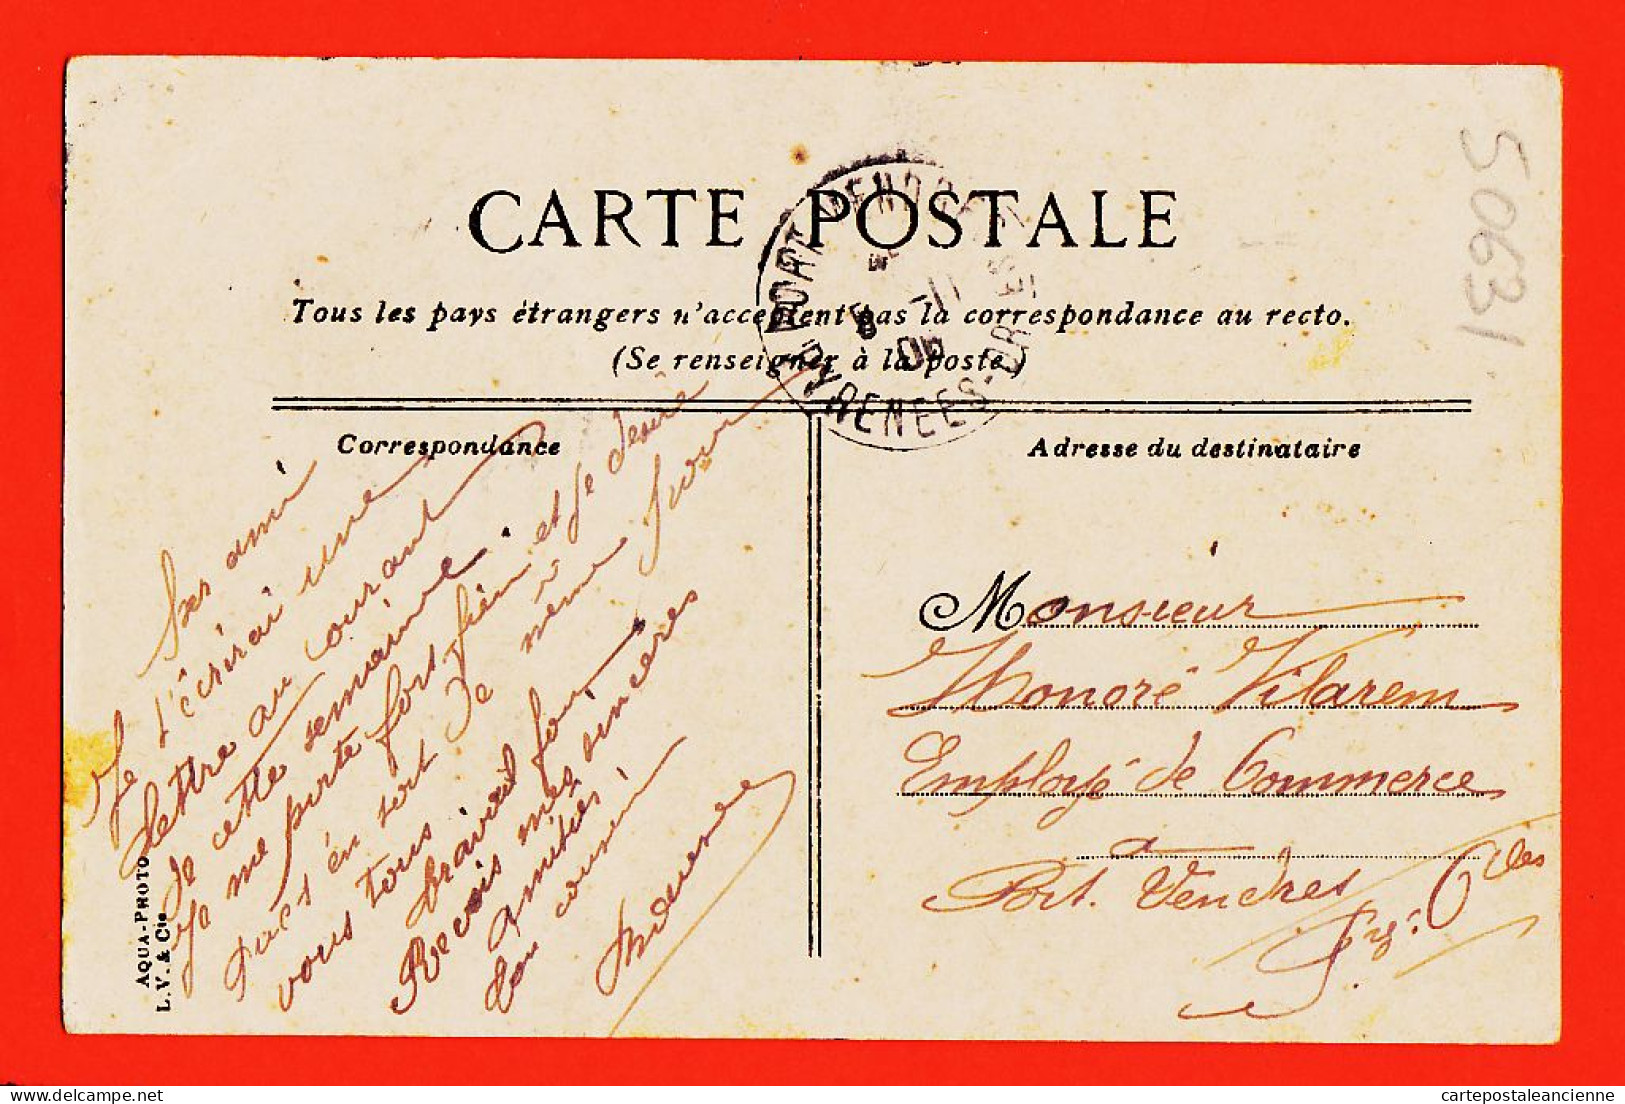 CARTE POSTALE
Tous les pays étrangers n'acceptent pas la correspondance au recto.
(Se renseigner à la poste)
Correspondance
Adresse du destinataire
ami
Je t'écrirai une
lettre au courant
de cette semaine.
Je me porte fort bien et je désire
en soit de même pour
vous tous
travail
Recois mes sincères
amitiés
ton cousin
Monsieur
Honoré Vilarem
Employé de Commerce
a
Port. Vendres
Pyr. Oles
PORT-VENDRES
PYRENEES-OR.LES
8 -11
06
50631
AQUA-PHOTO
L.V. & Cie
delcampe.net
cartepostaleancienne